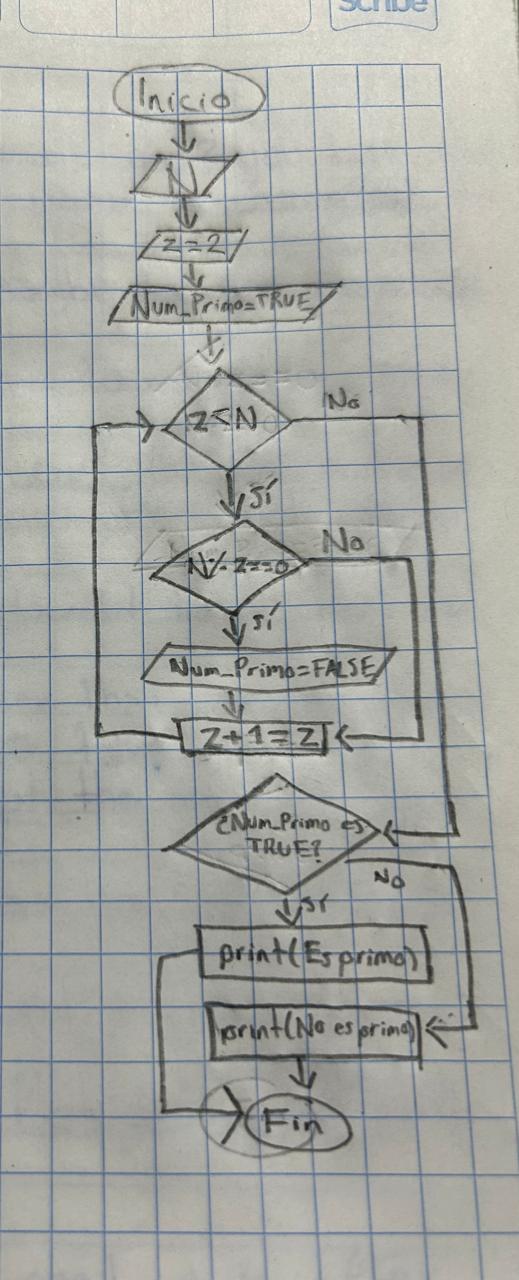 Scribe
Inicio
N
z=2
Num_Primo=TRUE
z<N
No
sí
N%z==0
No
sí
Num_Primo=FALSE
z+1=z
¿Num_Primo es
TRUE?
No
sí
print(Es primo)
print(No es primo)
Fin